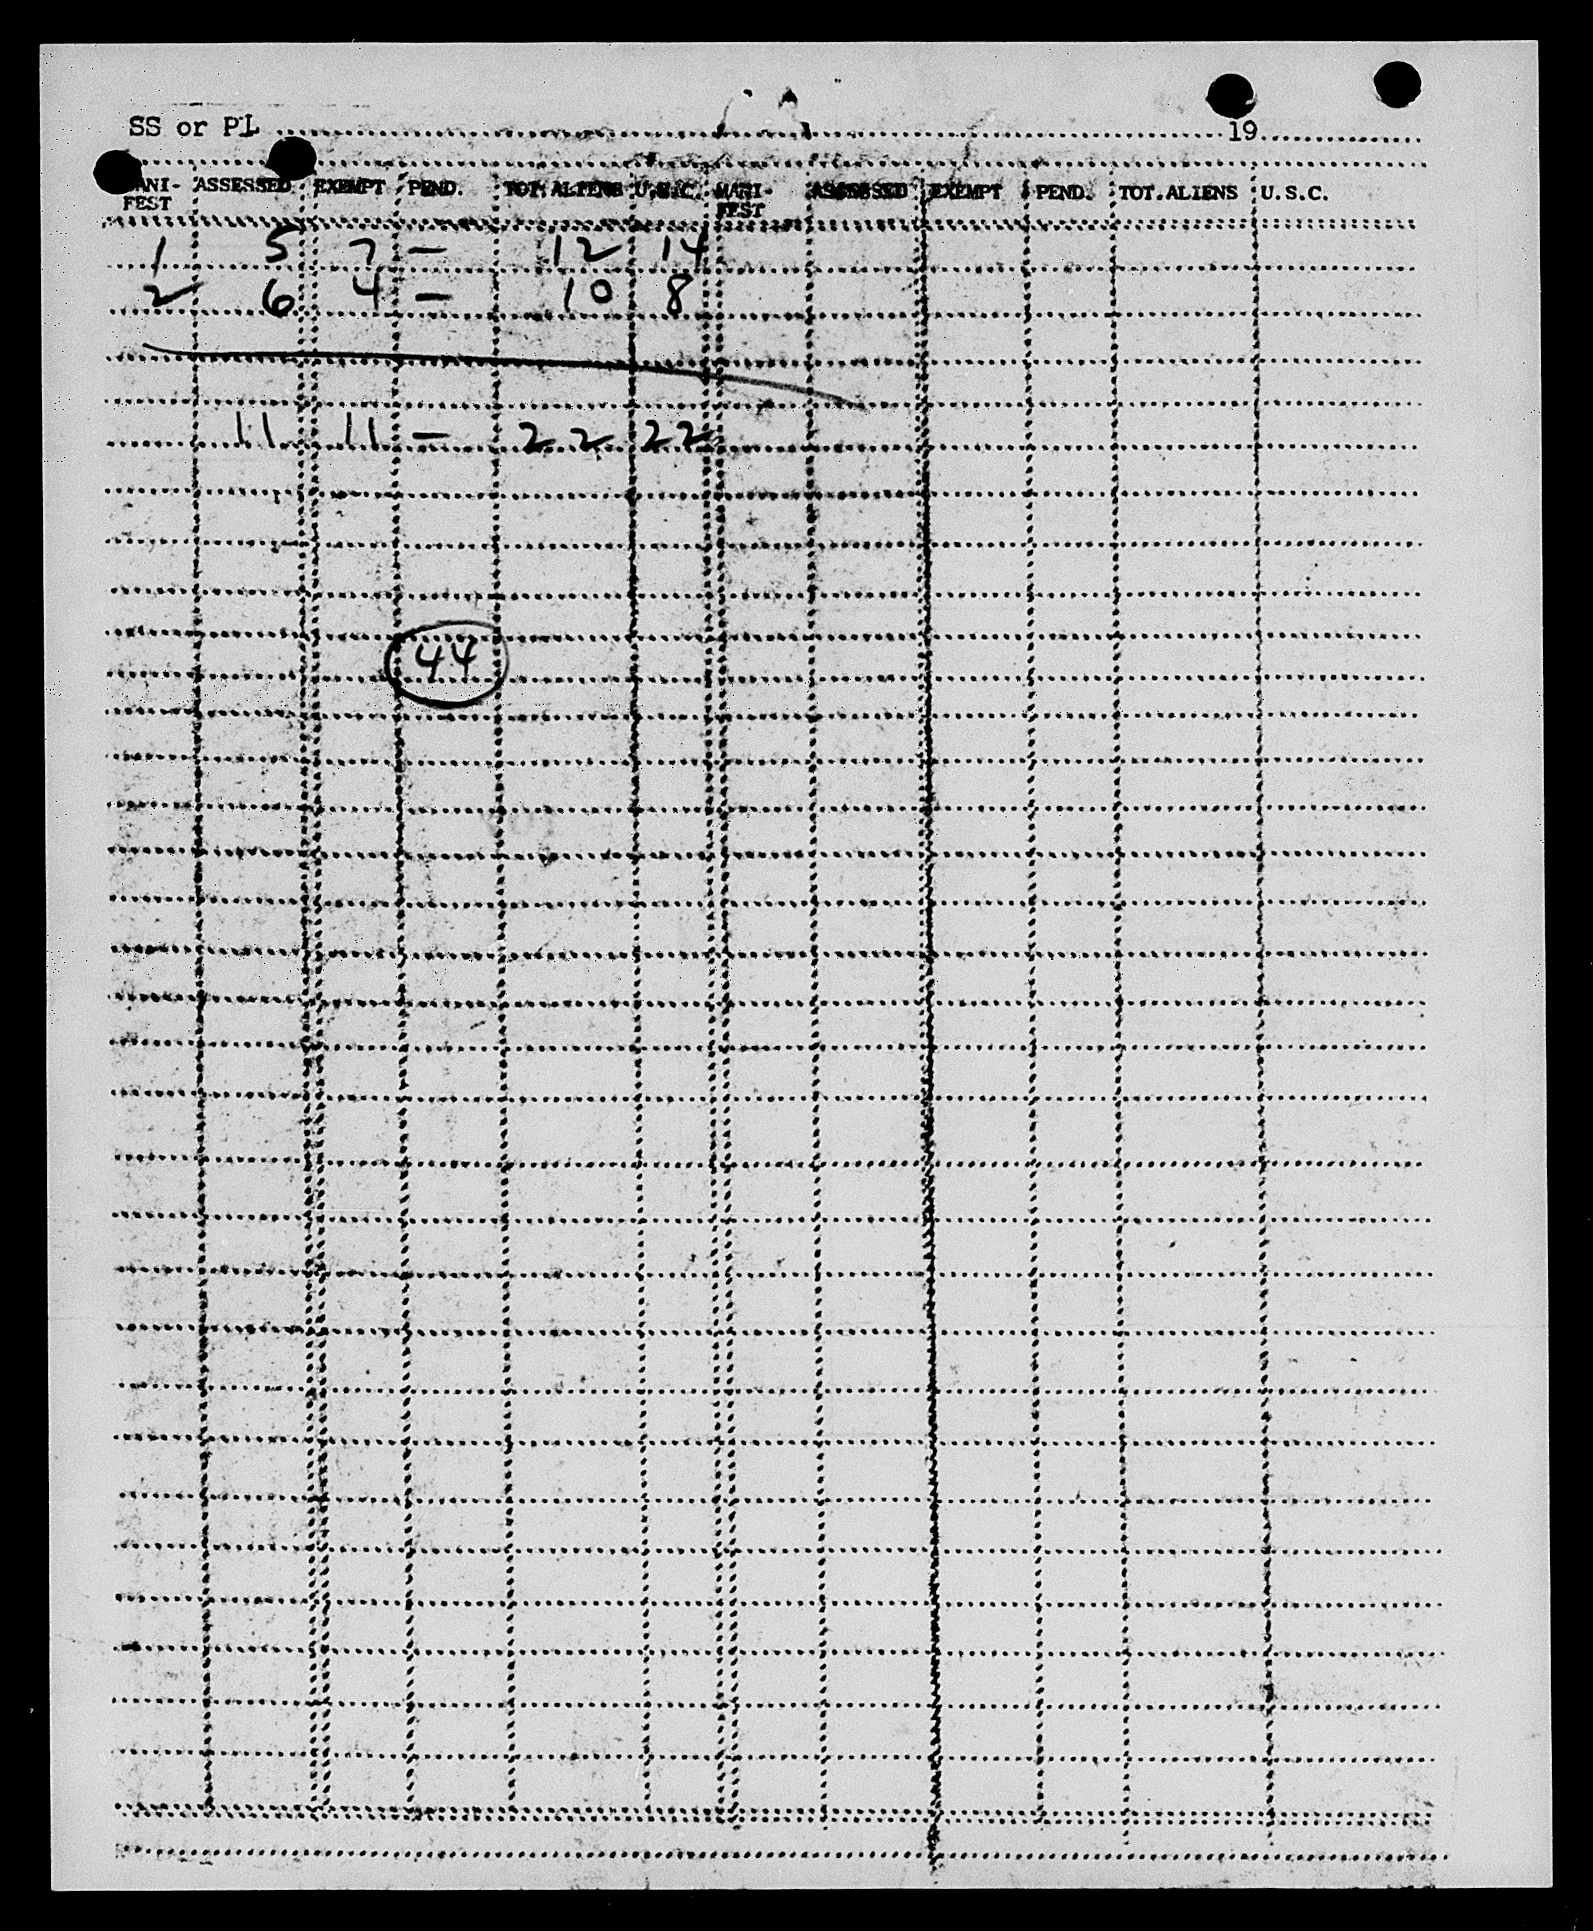 SS or PL 19
MANI- ASSESSED EXEMPT PEND. TOT.ALIENS U.S.C. MANI- ASSESSED EXEMPT PEND. TOT.ALIENS U.S.C.
FEST FEST
1 5 7 — 12 14
2 6 4 — 10 8
11 11 — 22 22
44